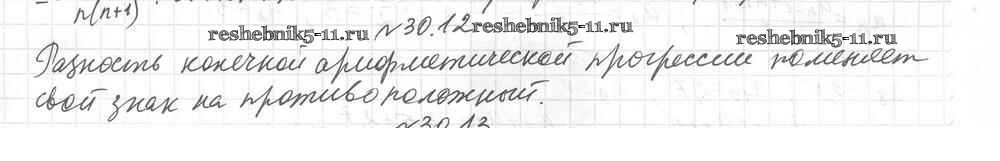 n(n+1)
№30.12 reshebnik5-11.ru
reshebnik5-11.ru reshebnik5-11.ru
Разность конечной арифметической прогрессии поменяет
свой знак на противоположный.
№30.13